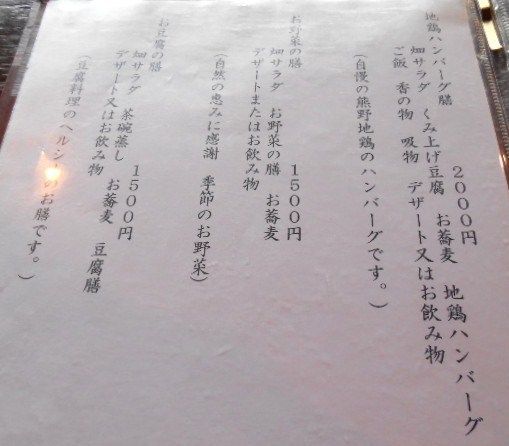 地鶏ハンバーグ膳 2000円
畑サラダ くみ上げ豆腐 お蕎麦 地鶏ハンバーグ
ご飯 香の物 吸物 デザート又はお飲み物
(自慢の熊野地鶏のハンバーグです。)
お野菜の膳 1500円
畑サラダ お野菜の膳 お蕎麦
デザートまたはお飲み物
(自然の恵みに感謝 季節のお野菜)
お豆腐の膳 1500円
畑サラダ 茶碗蒸し お蕎麦 豆腐膳
デザート又はお飲み物
(豆腐料理のヘルシ のお膳です。)